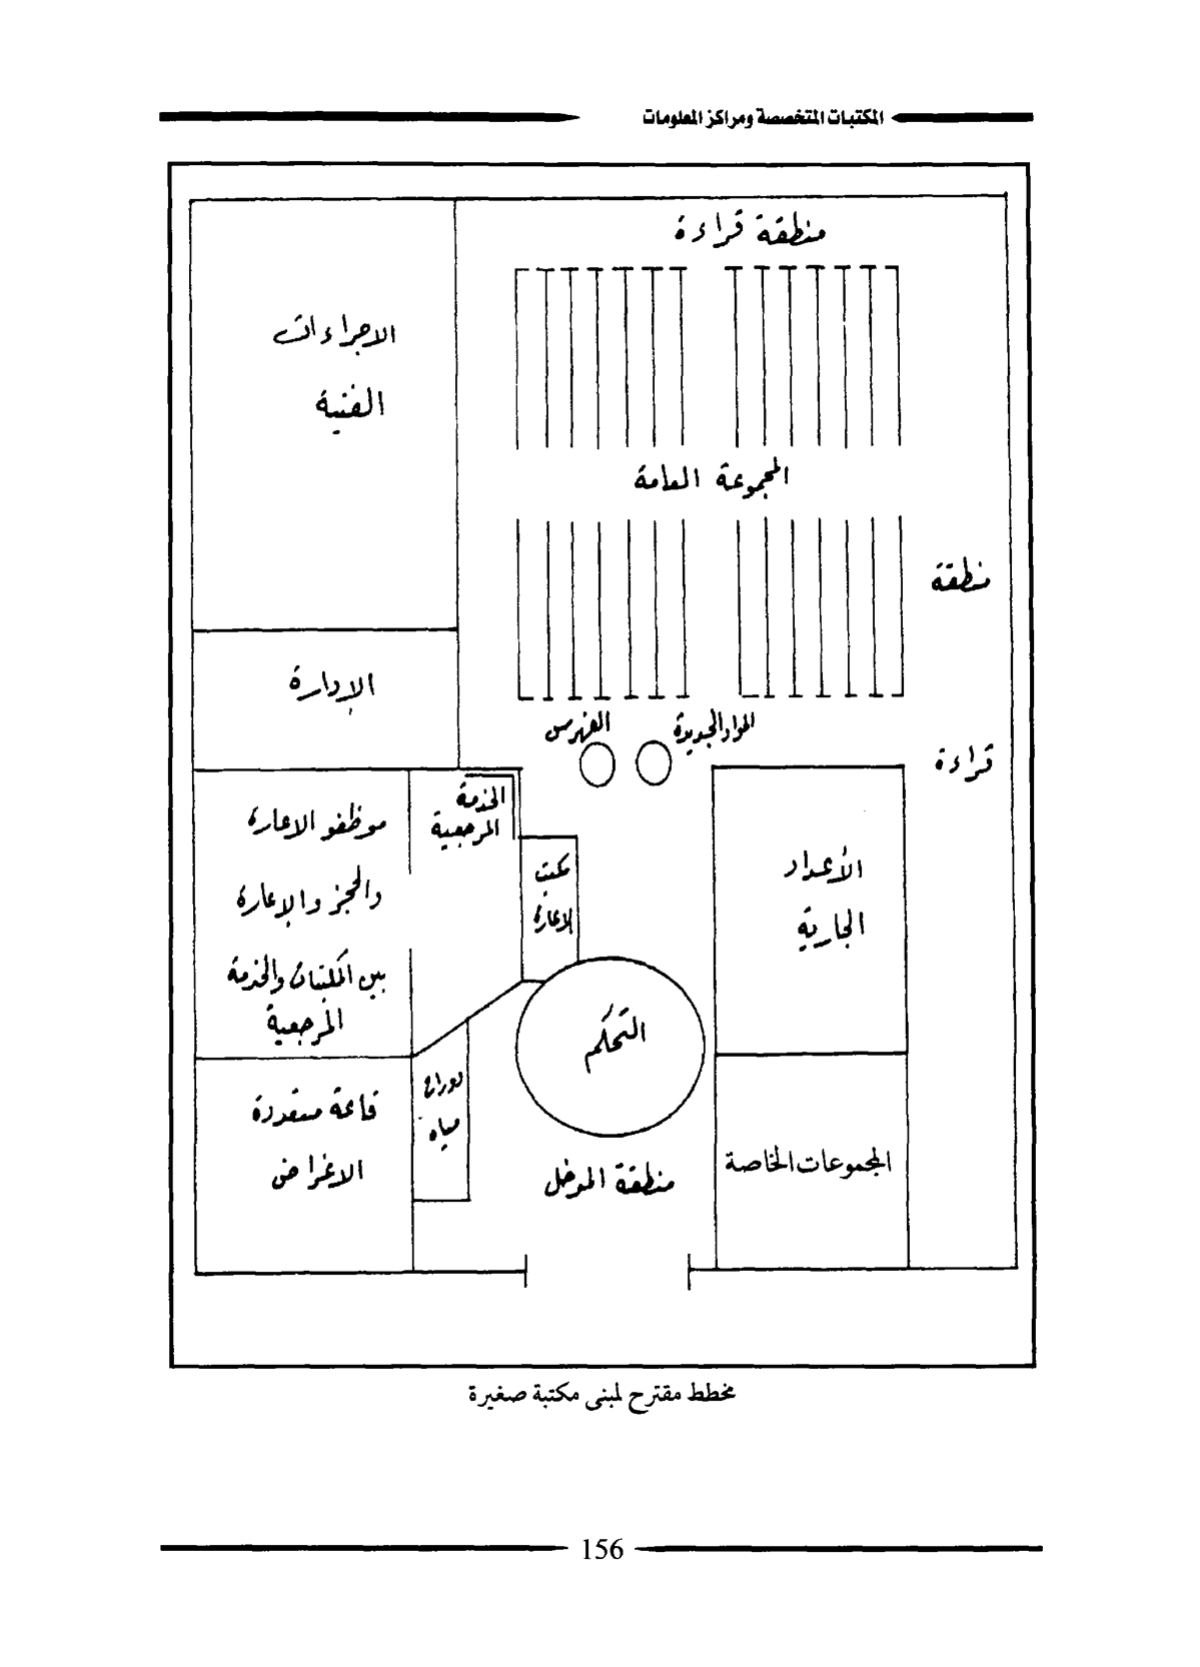 المكتبات المتخصصة ومراكز المعلومات
منطقة قراءة
الاجراءات
الفنية
المجموعة العامة
منطقة
قراءة
الإدارة
الفهرس
المواد الجديدة
الخدمة
المرجعية
موظفو الاعارة
والحجز والإعارة
بين المكتبات والخدمة
المرجعية
مكتب
الاعارة
الأعداد
الجارية
التحكم
دورات
مياه
قاعة متعددة
الاغراض
منطقة المدخل
المجموعات الخاصة
مخطط مقترح لمبنى مكتبة صغيرة
156